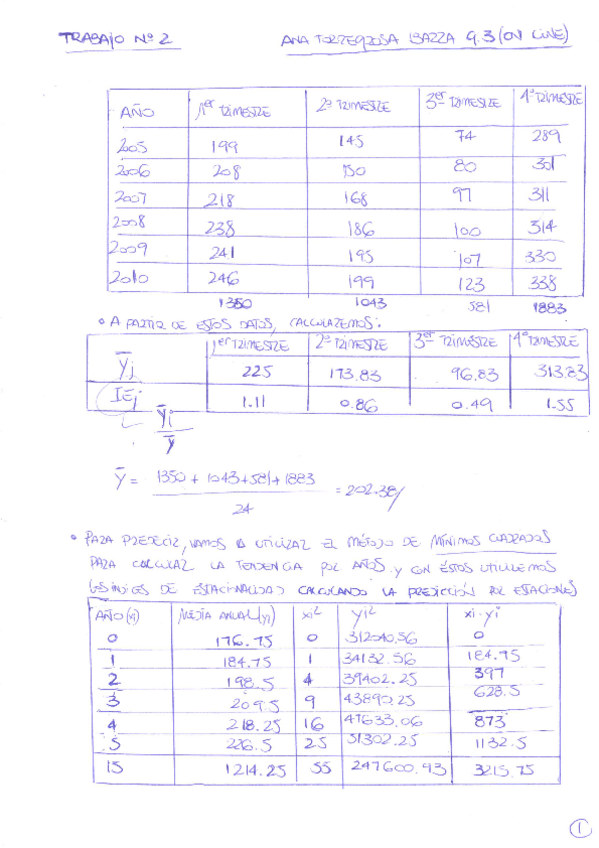 TRABAJO Nº 2 ANA TORREGROSA IBARRA G.3 (ON LINE)
AÑO 1er TRIMESTRE 2º TRIMESTRE 3er TRIMESTRE 4º TRIMESTRE
2005 199 145 74 289
2006 208 150 80 301
2007 218 168 97 311
2008 238 186 100 314
2009 241 195 107 330
2010 246 199 123 338
1350 1043 581 1883
• A PARTIR DE ESTOS DATOS, CALCULAREMOS:
1er TRIMESTRE 2º TRIMESTRE 3er TRIMESTRE 4º TRIMESTRE
Ȳj 225 173.83 96.83 313.83
IEj 1.11 0.86 0.49 1.55
Ȳj
Ȳ
Ȳ = 1350 + 1043 + 581 + 1883 = 202.38
24
• PARA PREDECIR, VAMOS A UTILIZAR EL MÉTODO DE MÍNIMOS CUADRADOS
PARA CALCULAR LA TENDENCIA POR AÑOS Y CON ÉSTOS UTILIZEMOS
LOS ÍNDICES DE ESTACIONALIDAD CALCULANDO LA PREDICCIÓN POR ESTACIONES
AÑO (xi) MEDIA ANUAL (yi) xi² yi² xi·yi
0 176.75 0 312040.56 0
1 184.75 1 34132.56 184.75
2 198.5 4 39402.25 397
3 209.5 9 43890.25 628.5
4 218.25 16 47633.06 873
5 226.5 25 51302.25 1132.5
15 1214.25 55 247600.93 3215.75
1